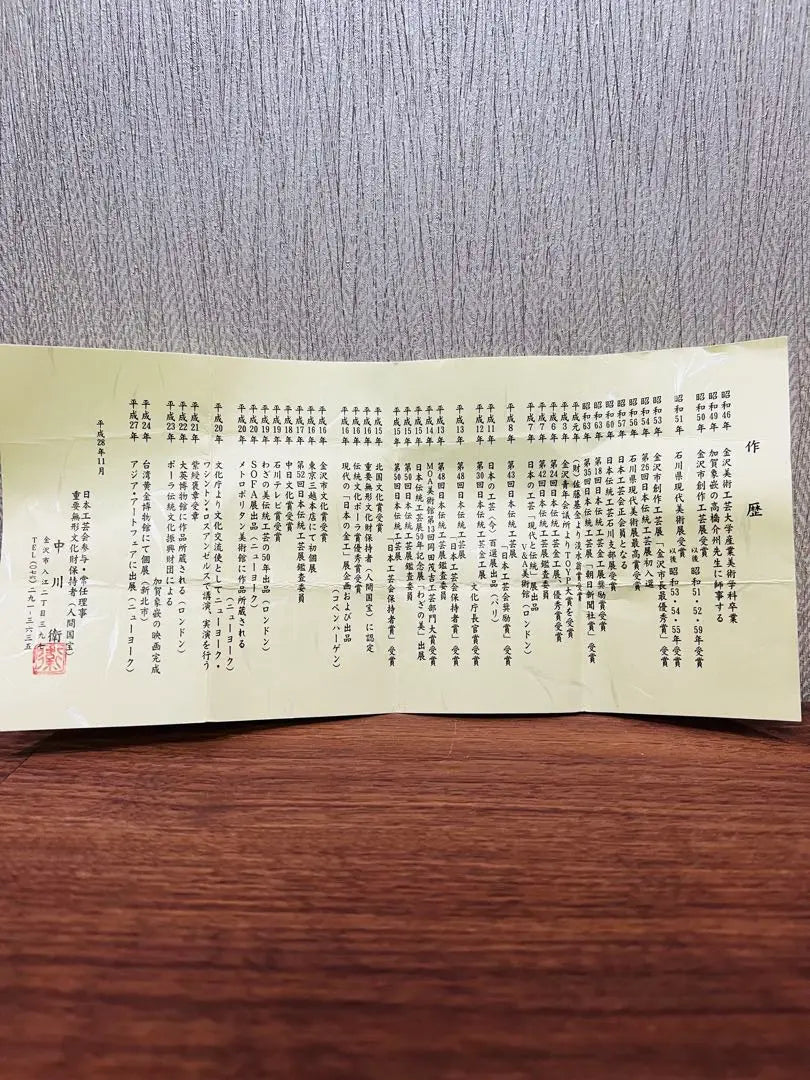 作歴
昭和46年 金沢美術工芸大学産業美術学科卒業
昭和49年 加賀象嵌の高橋介州先生に師事する
昭和50年 金沢市創作工芸展受賞
以後 昭和51・52・59年受賞
昭和51年 石川県現代美術展受賞
以後 昭和53・54・55年受賞
昭和53年 金沢市創作工芸展「金沢市長最優秀賞」受賞
昭和54年 第26回日本伝統工芸展初入選
昭和56年 石川県現代美術展最高賞受賞
昭和57年 日本工芸会正会員となる
昭和60年 日本伝統工芸石川支部展受賞
昭和63年 第18回日本伝統工芸金工展奨励賞受賞
昭和63年 第35回日本伝統工芸展「朝日新聞社賞」受賞
平成元年 (財)佐藤基金より淡水翁賞受賞
平成3年 金沢青年会議所よりTOYP大賞を受賞
平成6年 第24回日本伝統工芸金工展、優秀賞受賞
平成7年 第42回日本伝統工芸展鑑査委員
平成7年 日本の工芸「現代と伝統」展出品
V&A美術館(ロンドン)
平成8年 第43回日本伝統工芸展
「日本工芸会奨励賞」受賞
平成11年 日本の工芸〈今〉百選展出品(パリ)
平成12年 第30回日本伝統工芸金工展
文化庁長官賞受賞
平成13年 第48回日本伝統工芸展
「日本工芸会保持者賞」受賞
平成13年 第48回日本伝統工芸展鑑査委員
平成14年 MOA美術館第13回岡田茂吉工芸部門大賞受賞
平成15年 日本伝統工芸展50年記念展「わざの美」出展
平成15年 第50回日本伝統工芸展鑑査委員
平成15年 第50回日本伝統工芸展
「日本工芸会保持者賞」受賞
平成15年 北国文化賞受賞
平成16年 重要無形文化財保持者(人間国宝)に認定
平成16年 伝統文化ポーラ賞優秀賞受賞
平成16年 現代の「日本の金工」展企画および出品
(コペンハーゲン)
平成16年 金沢市文化賞受賞
平成16年 東京三越本店にて初個展
平成17年 第52回日本伝統工芸展鑑査委員
平成18年 中日文化賞受賞
平成19年 石川テレビ賞受賞
平成19年 わざの美伝統工芸の50年出品(ロンドン)
平成20年 SOFA展出品(ニューヨーク)
平成20年 メトロポリタン美術館に作品所蔵される
(ニューヨーク)
平成20年 文化庁より文化交流使としてニューヨーク・
ワシントン・ロスアンゼルスで講演、実演を行う
平成21年 紫綬褒章受章
平成22年 大英博物館に作品所蔵される(ロンドン)
平成23年 ポーラ伝統文化振興財団による
加賀象嵌の映画完成
平成24年 台湾黄金博物館にて個展(新北市)
平成27年 アジア・アートフェアに出展(ニューヨーク)
平成28年11月
日本工芸会参与・常任理事
重要無形文化財保持者(人間国宝)
中川衛
金沢市入江二丁目三九七
TEL(〇七六)二九一-三六三五
衛